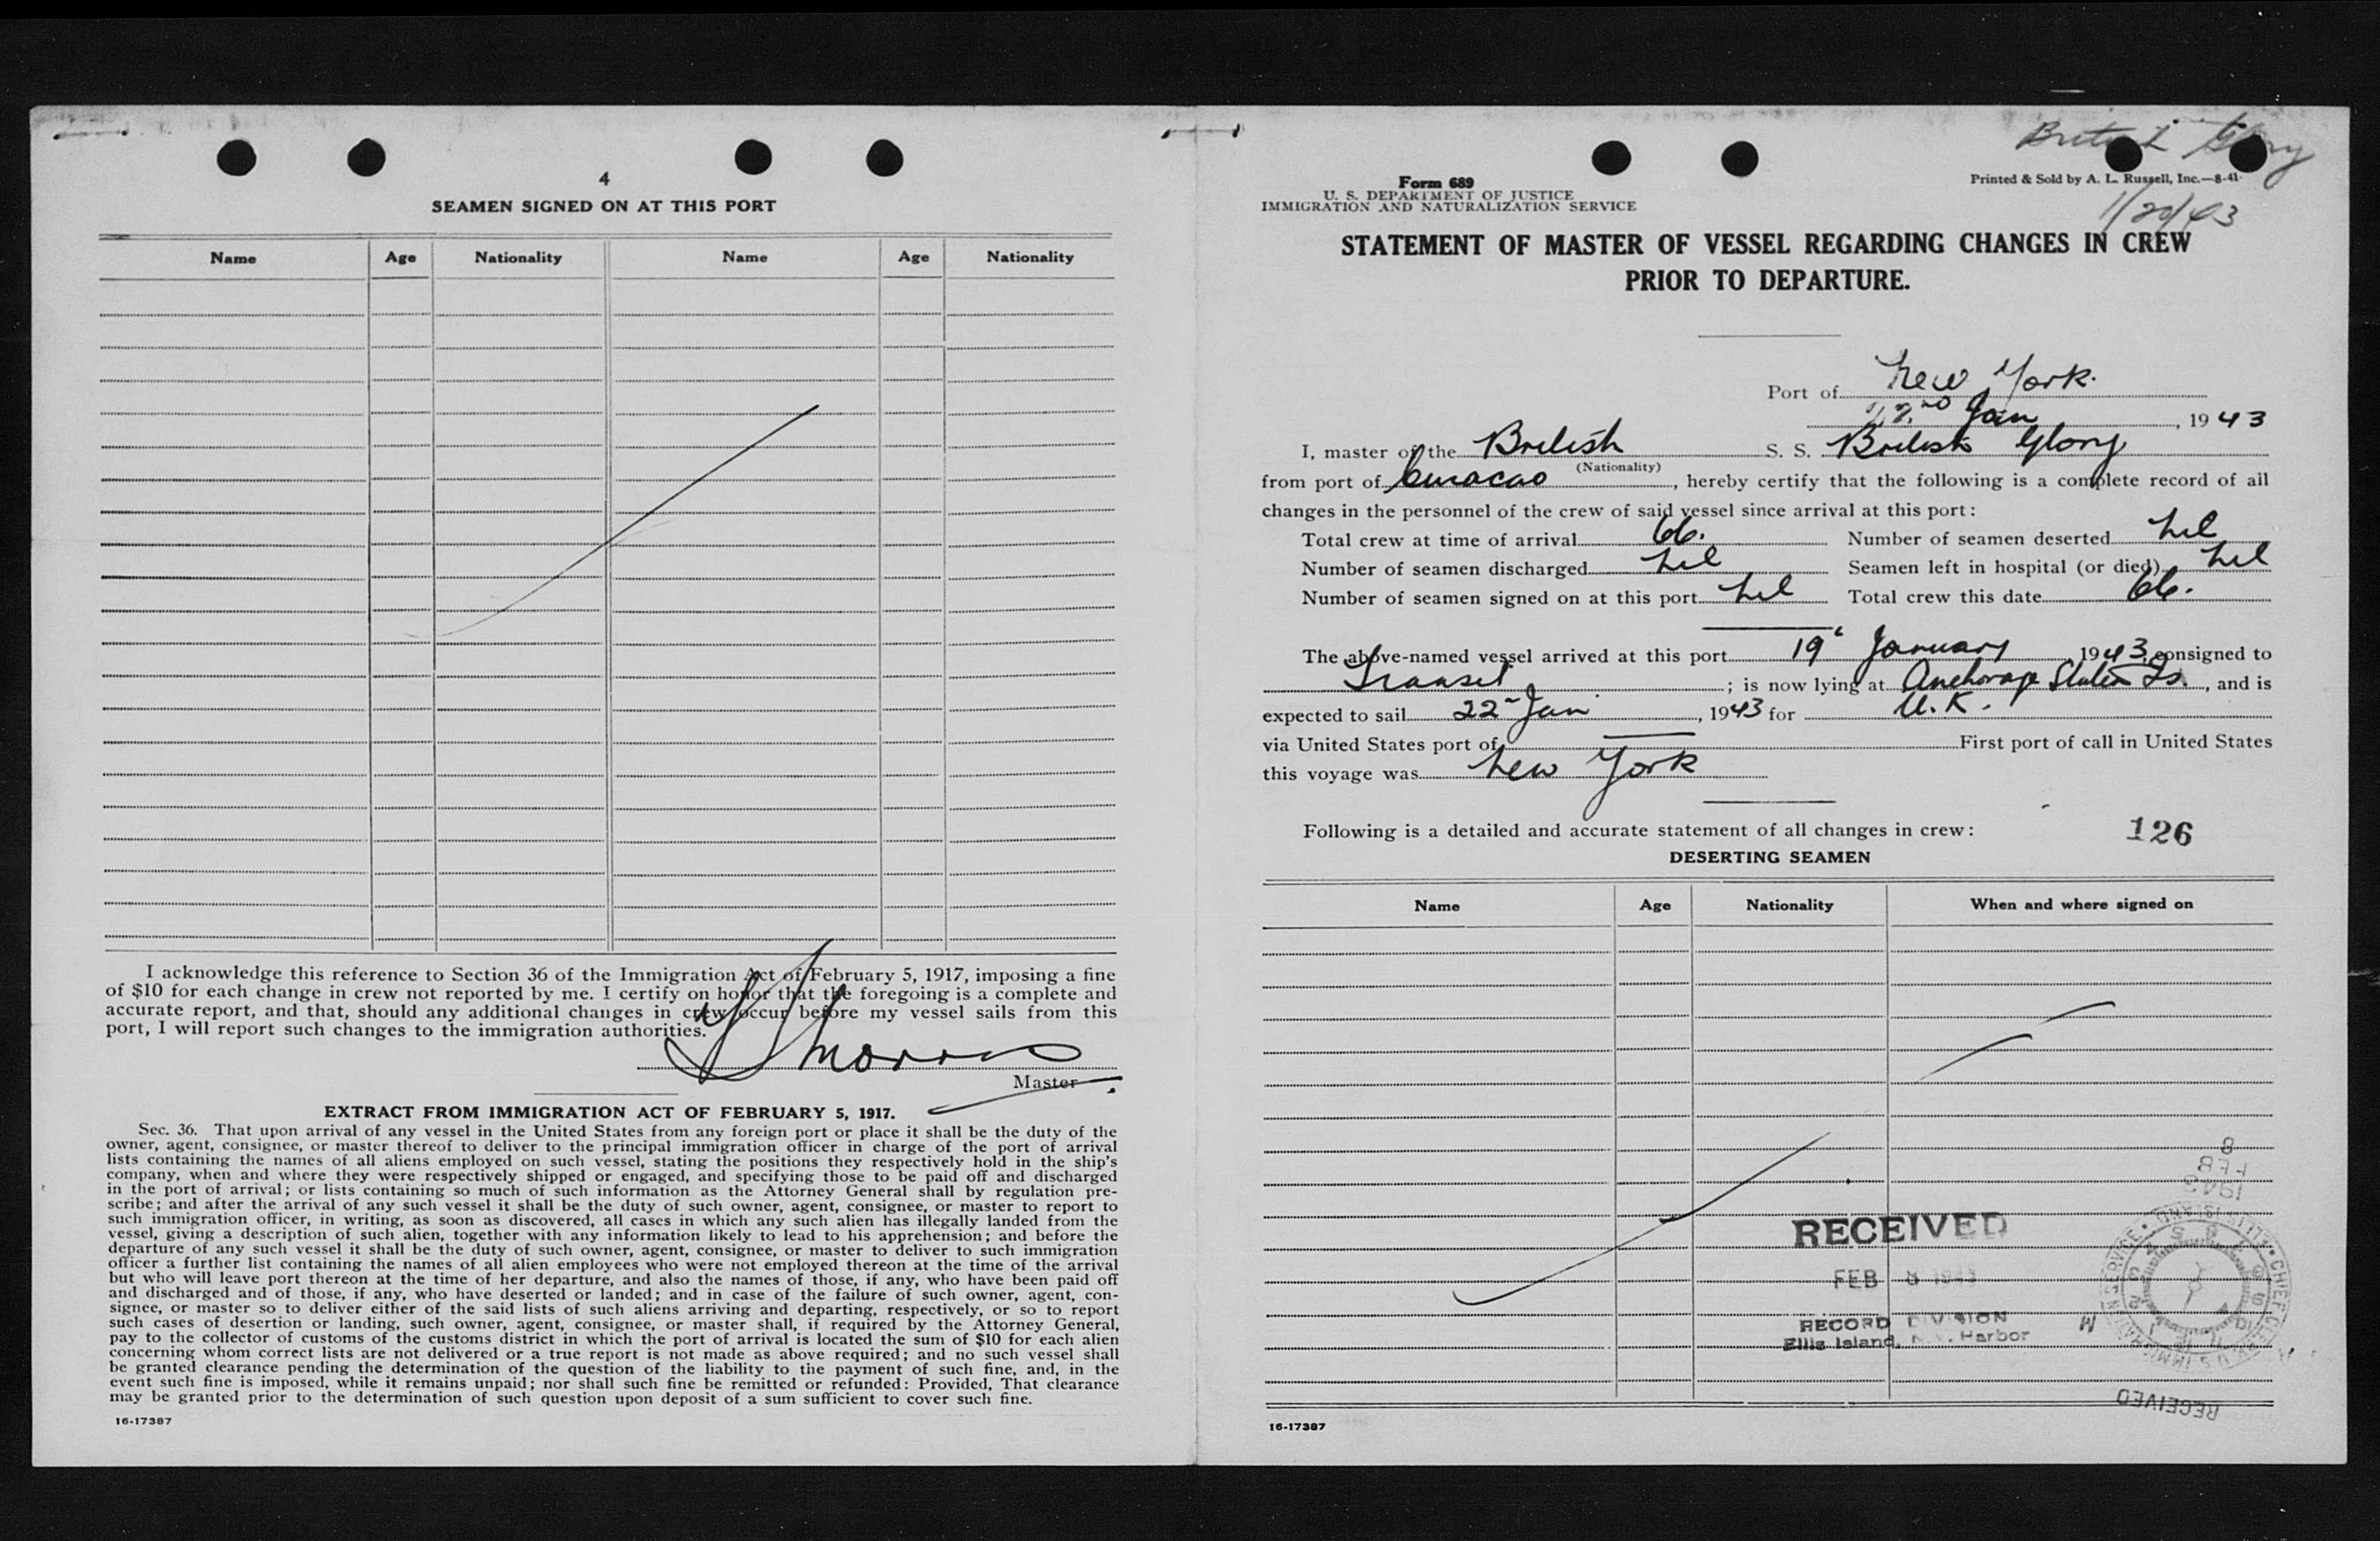 4
SEAMEN SIGNED ON AT THIS PORT
Name Age Nationality Name Age Nationality
I acknowledge this reference to Section 36 of the Immigration Act of February 5, 1917, imposing a fine
of $10 for each change in crew not reported by me. I certify on honor that the foregoing is a complete and
accurate report, and that, should any additional changes in crew occur before my vessel sails from this
port, I will report such changes to the immigration authorities.
Morris
Master
EXTRACT FROM IMMIGRATION ACT OF FEBRUARY 5, 1917.
Sec. 36. That upon arrival of any vessel in the United States from any foreign port or place it shall be the duty of the
owner, agent, consignee, or master thereof to deliver to the principal immigration officer in charge of the port of arrival
lists containing the names of all aliens employed on such vessel, stating the positions they respectively hold in the ship's
company, when and where they were respectively shipped or engaged, and specifying those to be paid off and discharged
in the port of arrival; or lists containing so much of such information as the Attorney General shall by regulation pre-
scribe; and after the arrival of any such vessel it shall be the duty of such owner, agent, consignee, or master to report to
such immigration officer, in writing, as soon as discovered, all cases in which any such alien has illegally landed from the
vessel, giving a description of such alien, together with any information likely to lead to his apprehension; and before the
departure of any such vessel it shall be the duty of such owner, agent, consignee, or master to deliver to such immigration
officer a further list containing the names of all alien employees who were not employed thereon at the time of the arrival
but who will leave port thereon at the time of her departure, and also the names of those, if any, who have been paid off
and discharged and of those, if any, who have deserted or landed; and in case of the failure of such owner, agent, con-
signee, or master so to deliver either of the said lists of such aliens arriving and departing, respectively, or so to report
such cases of desertion or landing, such owner, agent, consignee, or master shall, if required by the Attorney General,
pay to the collector of customs of the customs district in which the port of arrival is located the sum of $10 for each alien
concerning whom correct lists are not delivered or a true report is not made as above required; and no such vessel shall
be granted clearance pending the determination of the question of the liability to the payment of such fine, and, in the
event such fine is imposed, while it remains unpaid; nor shall such fine be remitted or refunded: Provided, That clearance
may be granted prior to the determination of such question upon deposit of a sum sufficient to cover such fine.
16-17387
British Glory
1/20/43
Form 689
U. S. DEPARTMENT OF JUSTICE
IMMIGRATION AND NATURALIZATION SERVICE
Printed & Sold by A. L. Russell, Inc.—8-41
STATEMENT OF MASTER OF VESSEL REGARDING CHANGES IN CREW
PRIOR TO DEPARTURE.
Port of New York.
22nd Jan, 1943
I, master of the British S. S. British Glory
(Nationality)
from port of Curacao, hereby certify that the following is a complete record of all
changes in the personnel of the crew of said vessel since arrival at this port:
Total crew at time of arrival 66. Number of seamen deserted nil
Number of seamen discharged nil Seamen left in hospital (or died) nil
Number of seamen signed on at this port nil Total crew this date 66.
The above-named vessel arrived at this port 19 January 1943, consigned to
Transit; is now lying at Anchorage Staten Is., and is
expected to sail 22 Jan, 1943 for U.K.
via United States port of First port of call in United States
this voyage was New York
Following is a detailed and accurate statement of all changes in crew:
126
DESERTING SEAMEN
Name Age Nationality When and where signed on
8
FEB
1943
RECEIVED
FEB 8 1943
RECORD DIVISION
Ellis Island, N.Y. Harbor
RECEIVED
16-17387